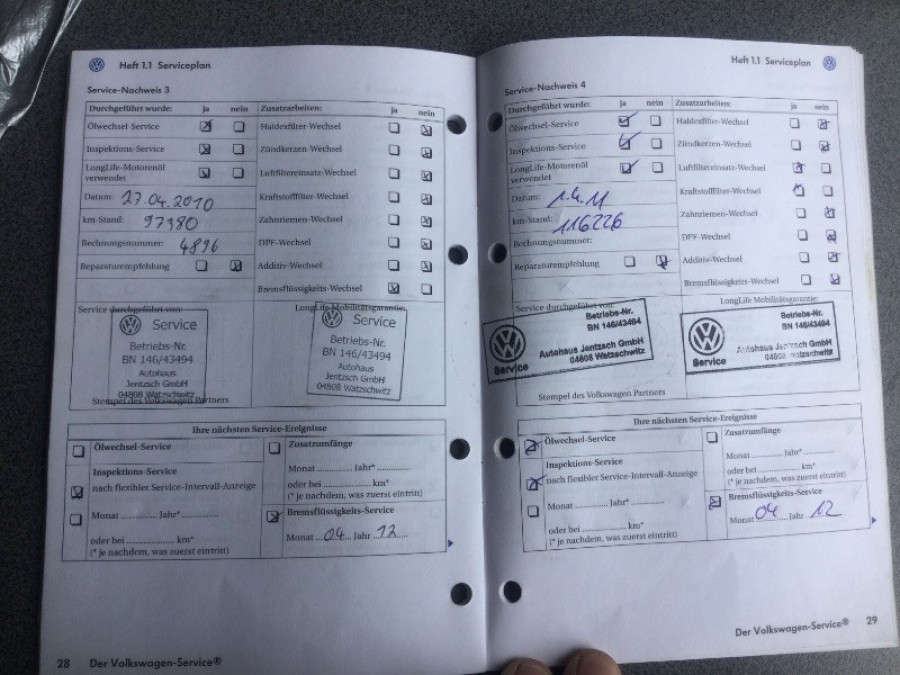 Heft 1.1 Serviceplan
Service-Nachweis 3
Durchgeführt wurde: ja nein Zusatzarbeiten: ja nein
Ölwechsel-Service Haldexfilter-Wechsel
Inspektions-Service Zündkerzen-Wechsel
LongLife-Motorenöl verwendet Luftfiltereinsatz-Wechsel
Datum: 27.04.2010 Kraftstofffilter-Wechsel
km-Stand: 97380 Zahnriemen-Wechsel
Rechnungsnummer: 4896 DPF-Wechsel
Reparaturempfehlung Additiv-Wechsel
Bremsflüssigkeits-Wechsel
Service durchgeführt von: LongLife Mobilitätsgarantie:
Service
Betriebs-Nr.
BN 146/43494
Autohaus
Jentzsch GmbH
04808 Watzschwitz
Service
Betriebs-Nr.
BN 146/43494
Autohaus
Jentzsch GmbH
04808 Watzschwitz
Stempel des Volkswagen Partners
Ihre nächsten Service-Ereignisse
Ölwechsel-Service
Inspektions-Service
nach flexibler Service-Intervall-Anzeige
Monat ............ Jahr* ............
oder bei ........................ km*
(* je nachdem, was zuerst eintritt)
Zusatzumfänge
Monat ............ Jahr* ............
oder bei ........................ km*
(* je nachdem, was zuerst eintritt)
Bremsflüssigkeits-Service
Monat 04 Jahr 12
28 Der Volkswagen-Service®
Heft 1.1 Serviceplan
Service-Nachweis 4
Durchgeführt wurde: ja nein Zusatzarbeiten: ja nein
Ölwechsel-Service Haldexfilter-Wechsel
Inspektions-Service Zündkerzen-Wechsel
LongLife-Motorenöl verwendet Luftfiltereinsatz-Wechsel
Datum: 1.4.11 Kraftstofffilter-Wechsel
km-Stand: 116226 Zahnriemen-Wechsel
Rechnungsnummer: DPF-Wechsel
Reparaturempfehlung Additiv-Wechsel
Bremsflüssigkeits-Wechsel
Service durchgeführt von: LongLife Mobilitätsgarantie:
Betriebs-Nr.
BN 146/43494
Autohaus Jentzsch GmbH
04808 Watzschwitz
Service
Betriebs-Nr.
BN 146/43494
Autohaus Jentzsch GmbH
04808 Watzschwitz
Service
Stempel des Volkswagen Partners
Ihre nächsten Service-Ereignisse
Ölwechsel-Service
Inspektions-Service
nach flexibler Service-Intervall-Anzeige
Monat ............ Jahr* ............
oder bei ........................ km*
(* je nachdem, was zuerst eintritt)
Zusatzumfänge
Monat ............ Jahr* ............
oder bei ........................ km*
(* je nachdem, was zuerst eintritt)
Bremsflüssigkeits-Service
Monat 04 Jahr 12
Der Volkswagen-Service® 29